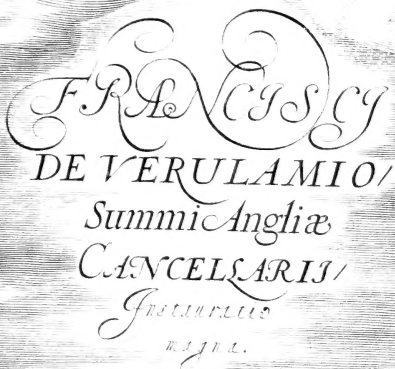 FRANCISCI
DE VERULAMIO/
Summi Angliæ
CANCELLARII/
Instauratio
magna.